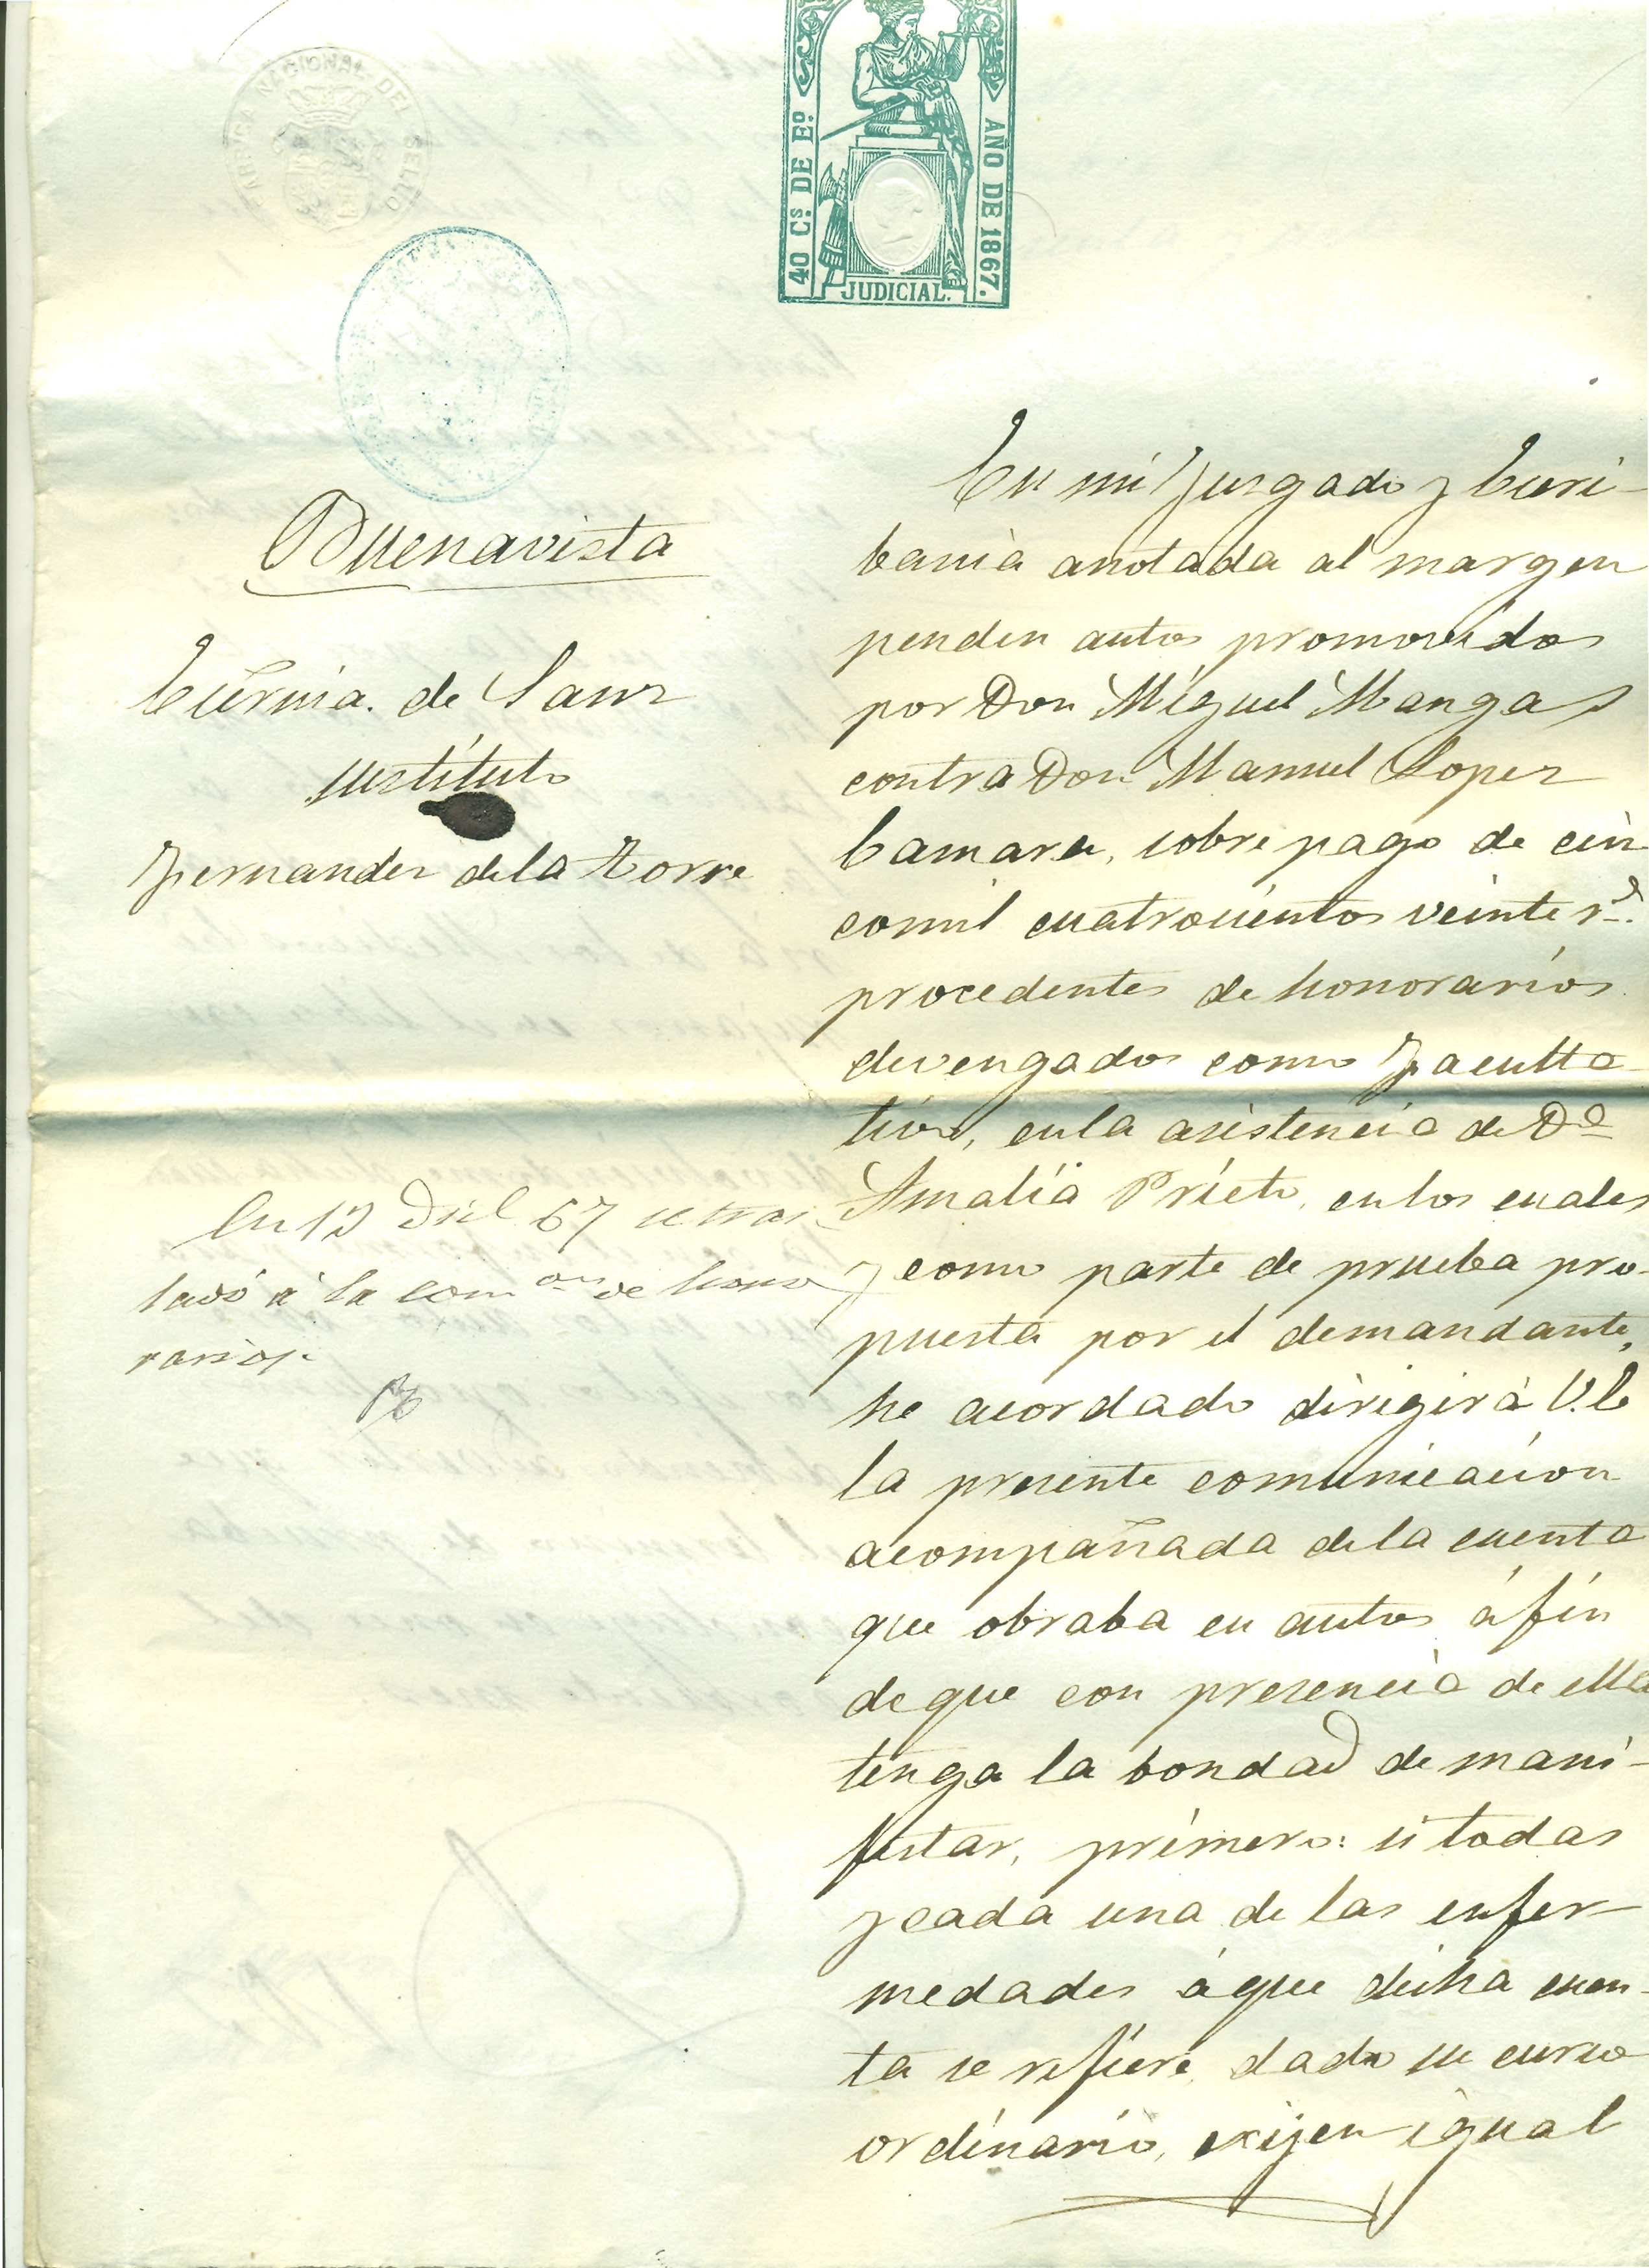 FABRICA NACIONAL DEL SELLO
40 Cs. DE Eº.
AÑO DE 1867.
JUDICIAL.
Buenavista
Escrnia. de Sanz
sustituto
Fernandez de la Torre
En 12 Dicl 67 se tras-
ladó á la comon de hono
rarios.
En mi Juzgado y Escri-
bania anotada al margen
penden autos promovidos
por Don Miguel Mangas
contra Don Manuel Lopez
Camara, sobre pago de cin
comil cuatrocientos veinte rs.
procedentes de honorarios
devengados como Faculta-
tivo, en la asistencia de Dª
Amalia Prieto, en los cuales
y como parte de prueba pro-
puesta por el demandante,
he acordado dirigir á V.E
la presente comunicacion
acompañada de la cuenta
que obraba en autos á fin
de que con presencia de ella
tenga la bondad de mani-
festar, primero: si todas
y cada una de las enfer-
medades á que dicha cuen-
ta se refiere, dado su curso
ordinario, exijen igual